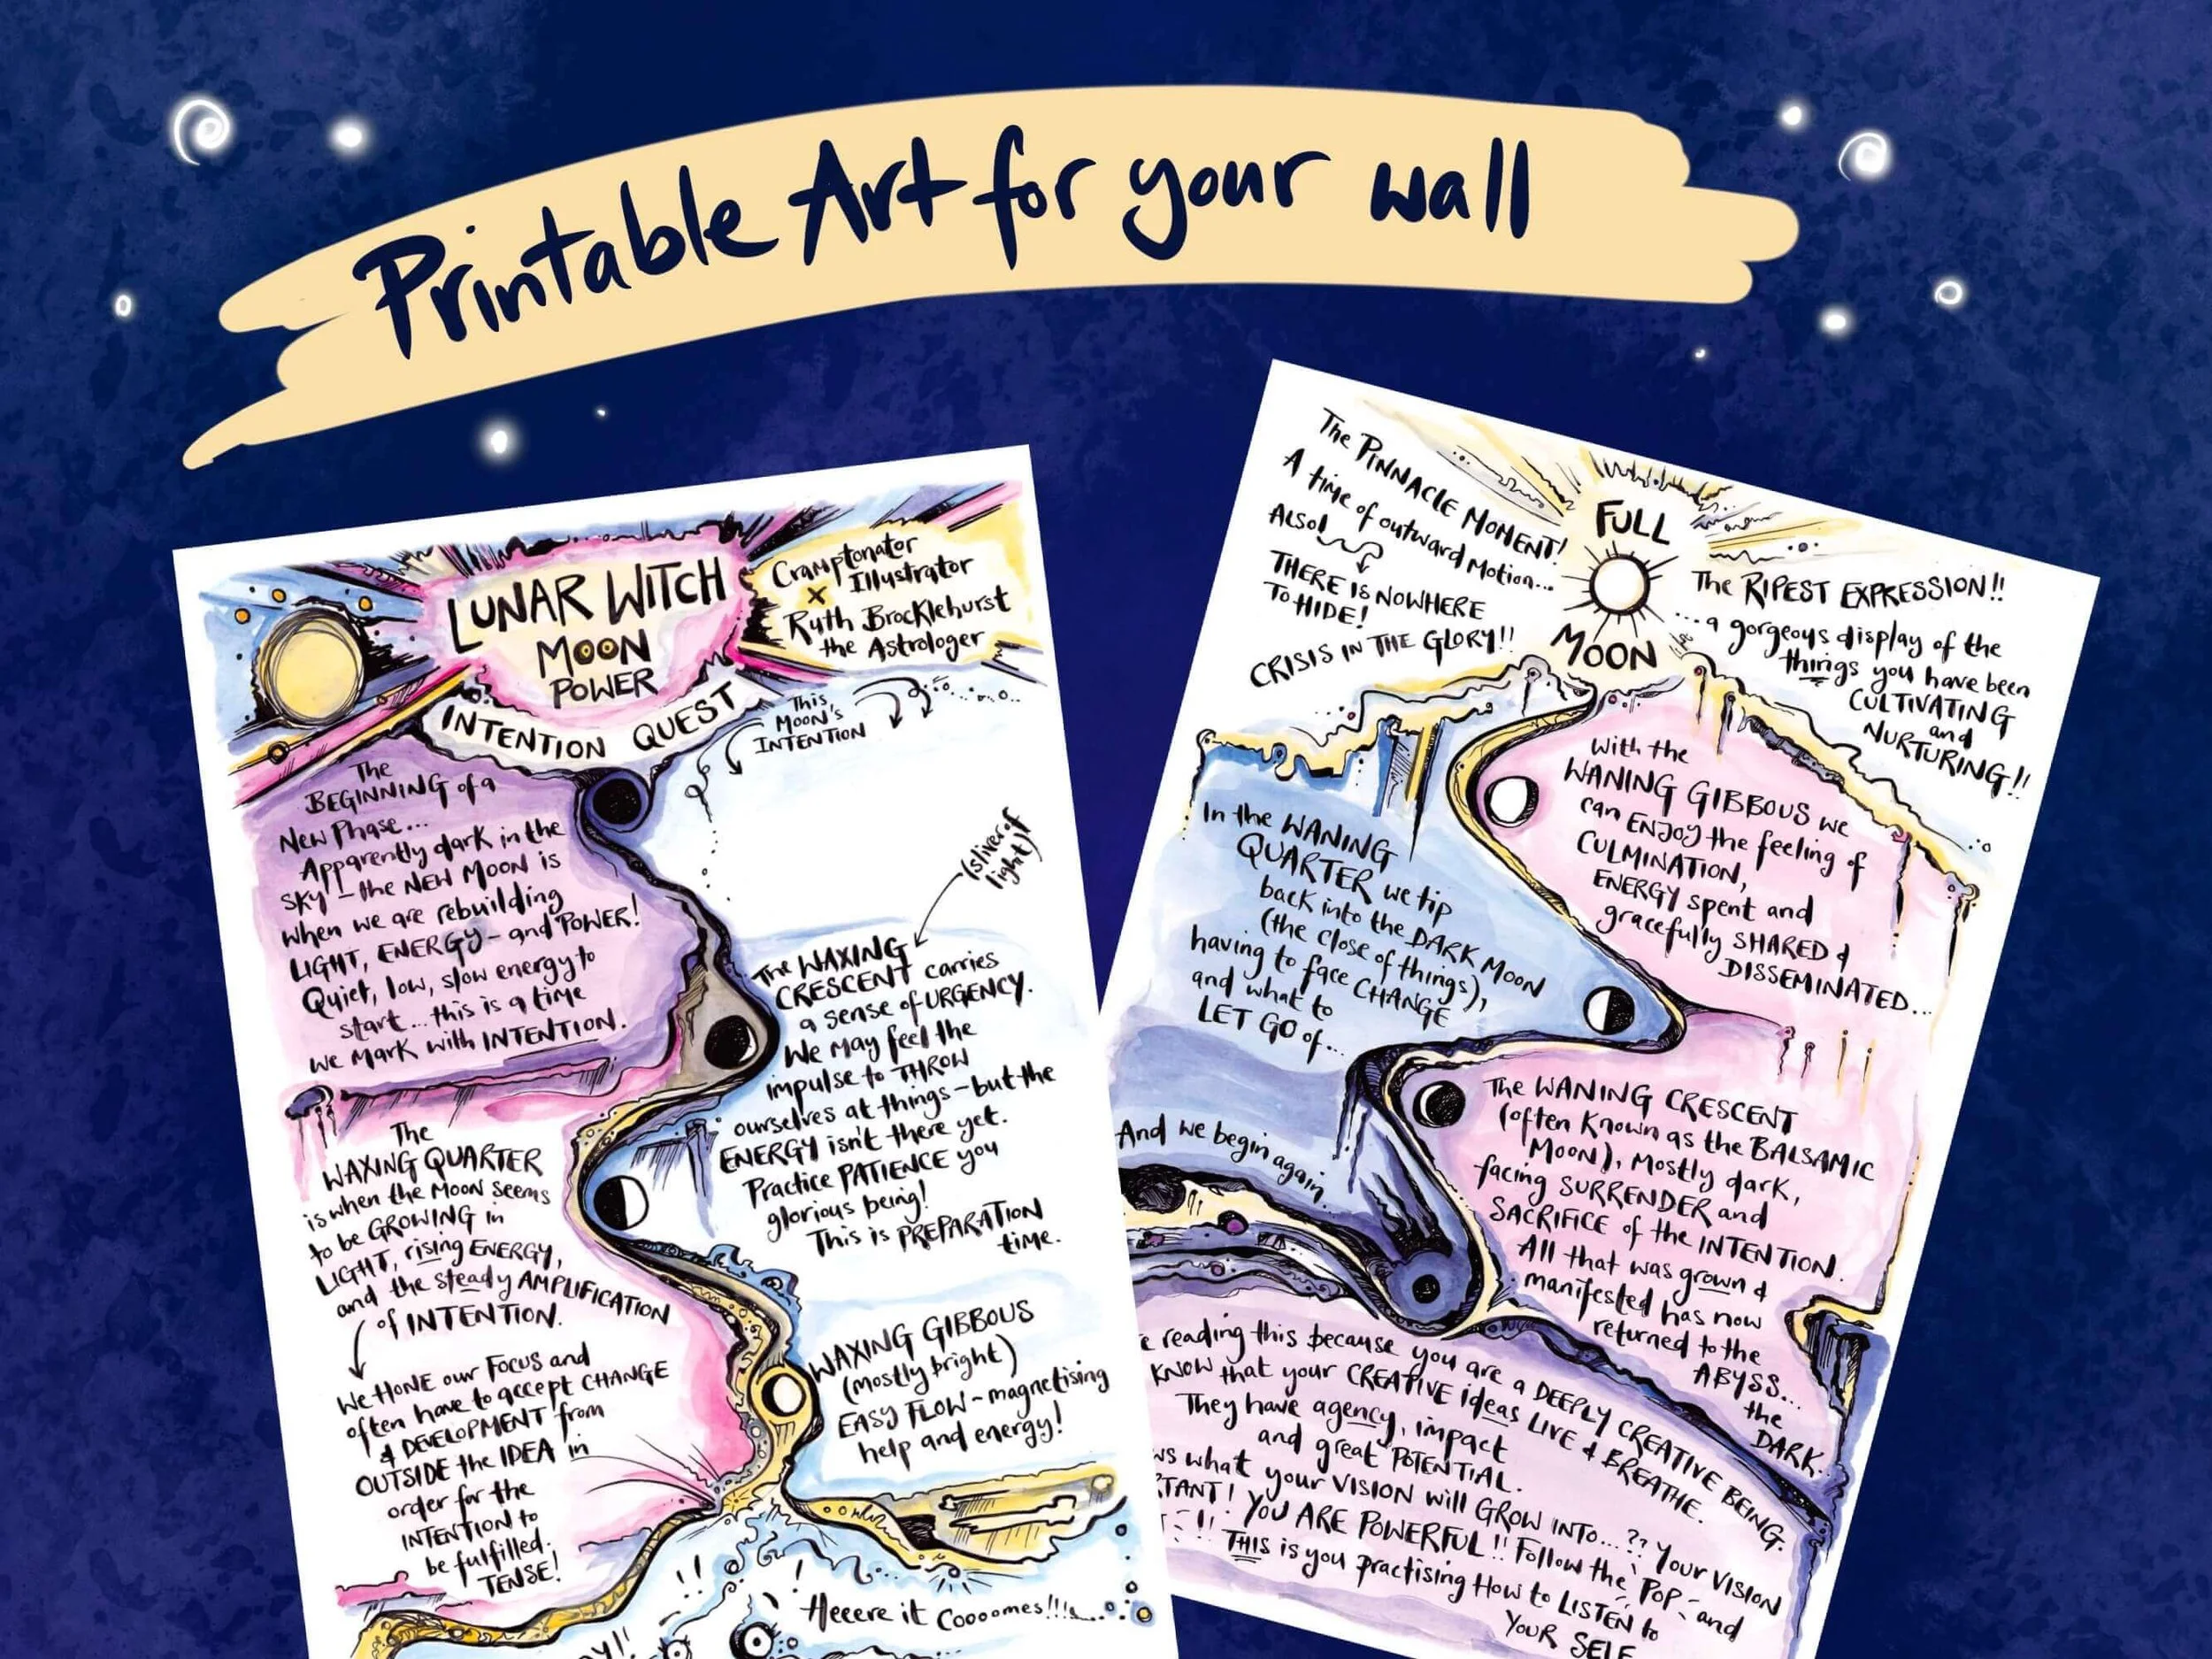 Printable Art for your wall
LUNAR WITCH
MOON
POWER
INTENTION QUEST
Cramptonator
Illustrator
x
Ruth Brocklehurst
the Astrologer
This
Moon's
INTENTION
The
BEGINNING of a
New Phase...
Apparently dark in the
sky - the NEW MOON is
when we are rebuilding
LIGHT, ENERGY - and POWER!
Quiet, low, slow energy to
start... this is a time
we mark with INTENTION.
(sliver of
light)
The WAXING
CRESCENT carries
a sense of URGENCY.
We may feel the
impulse to THROW
ourselves at things - but the
ENERGY isn't there yet.
Practice PATIENCE you
glorious being!
This is PREPARATION
time.
The
WAXING QUARTER
is when the Moon seems
to be GROWING in
LIGHT, rising ENERGY,
and the steady AMPLIFICATION
of INTENTION.
We HONE our Focus and
often have to accept CHANGE
& DEVELOPMENT from
OUTSIDE the IDEA in
order for the
INTENTION to
be fulfilled.
TENSE!
WAXING GIBBOUS
(mostly bright)
EASY FLOW - magnetising
help and energy!
Heeere it Coooomes!!!
The PINNACLE MOMENT!
A time of outward Motion...
ALSO!
THERE IS NOWHERE
TO HIDE!
CRISIS IN THE GLORY!!
FULL
MOON
The RIPEST EXPRESSION!!
...a gorgeous display of the
things you have been
CULTIVATING
and
NURTURING!!
With the
WANING GIBBOUS we
can ENJOY the feeling of
CULMINATION,
ENERGY spent and
gracefully SHARED &
DISSEMINATED...
In the WANING
QUARTER we tip
back into the DARK MOON
(the close of things),
having to face CHANGE
and what to
LET GO of...
The WANING CRESCENT
(often known as the BALSAMIC
Moon), mostly dark,
facing SURRENDER and
SACRIFICE of the INTENTION.
All that was grown &
manifested has now
returned to the
ABYSS...
the
DARK...
And we begin again
reading this because you are a DEEPLY CREATIVE BEING.
KNOW that your CREATIVE ideas LIVE & BREATHE.
They have agency, impact
and great POTENTIAL.
what your VISION will GROW INTO...?? Your VISION
YOU ARE POWERFUL!! Follow the POP - and
THIS is you practising How to LISTEN to
YOUR SELF